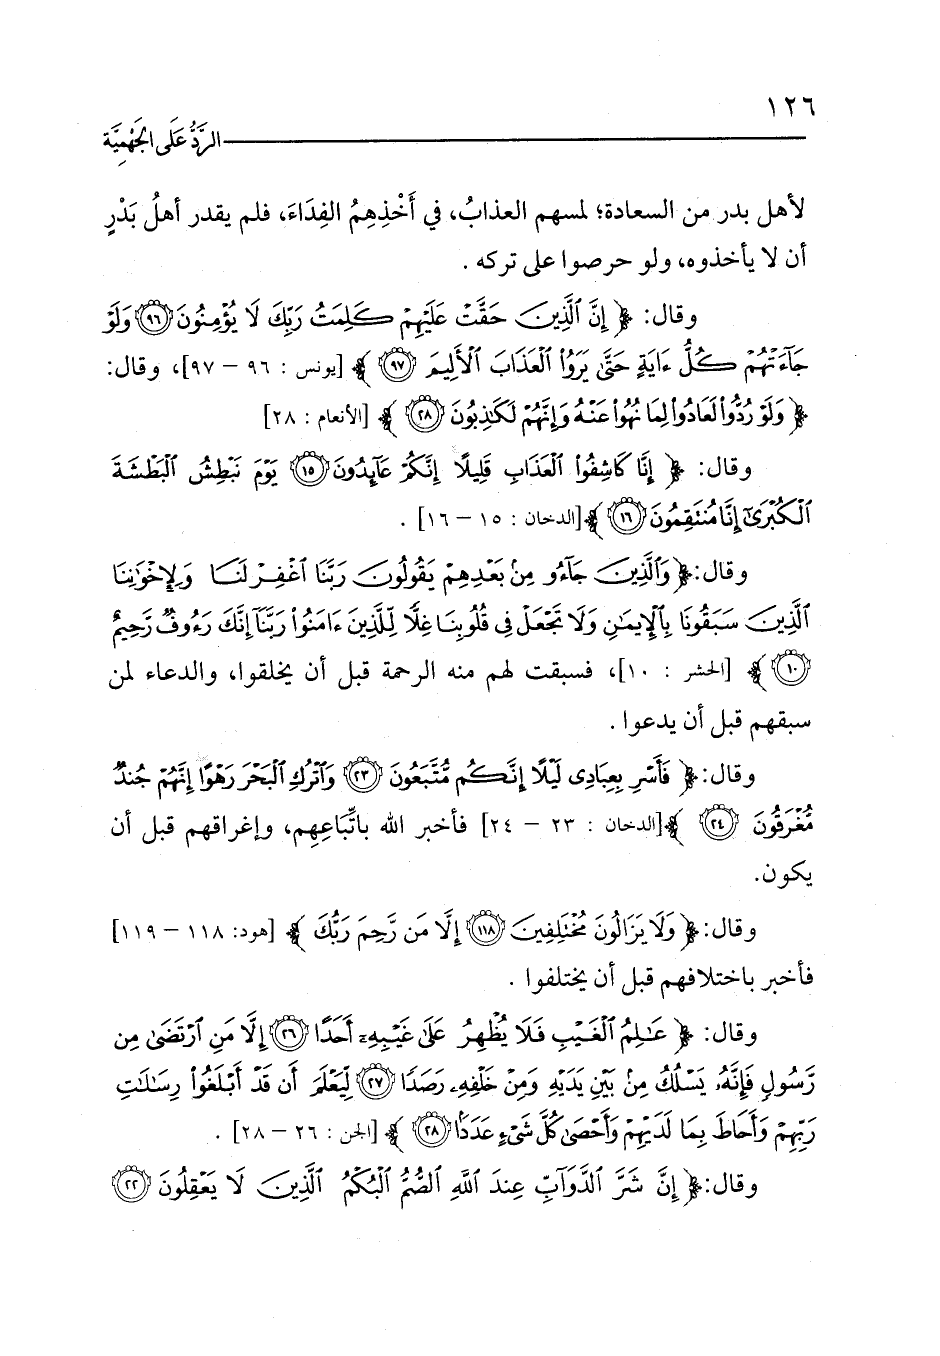 ١٢٦
الرَّدُّ عَلَى الجَهْمِيَّة
لأهل بدر من السعادة؛ لمسهم العذابُ، في أَخْذِهِمُ الفِدَاءَ، فلم يقدر أهلُ بَدْرٍ
أن لا يأخذوه، ولو حرصوا على تركه .
وقال: ﴿ إِنَّ ٱلَّذِينَ حَقَّتْ عَلَيْهِمْ كَلِمَتُ رَبِّكَ لَا يُؤْمِنُونَ ٩٦ وَلَوْ
جَآءَتْهُمْ كُلُّ ءَايَةٍ حَتَّىٰ يَرَوُا۟ ٱلْعَذَابَ ٱلْأَلِيمَ ٩٧ ﴾ [يونس : ٩٦ – ٩٧]، وقال:
﴿ وَلَوْ رُدُّوا۟ لَعَادُوا۟ لِمَا نُهُوا۟ عَنْهُ وَإِنَّهُمْ لَكَٰذِبُونَ ٢٨ ﴾ [الأنعام : ٢٨]
وقال: ﴿ إِنَّا كَاشِفُوا۟ ٱلْعَذَابِ قَلِيلًا إِنَّكُمْ عَآئِدُونَ ١٥ يَوْمَ نَبْطِشُ ٱلْبَطْشَةَ
ٱلْكُبْرَىٰٓ إِنَّا مُنتَقِمُونَ ١٦ ﴾[الدخان : ١٥ – ١٦] .
وقال:﴿ وَٱلَّذِينَ جَآءُو مِنۢ بَعْدِهِمْ يَقُولُونَ رَبَّنَا ٱغْفِرْ لَنَا وَلِإِخْوَٰنِنَا
ٱلَّذِينَ سَبَقُونَا بِٱلْإِيمَٰنِ وَلَا تَجْعَلْ فِى قُلُوبِنَا غِلًّا لِّلَّذِينَ ءَامَنُوا۟ رَبَّنَآ إِنَّكَ رَءُوفٌ رَّحِيمٌ
١٠ ﴾ [الحشر : ١٠]، فسبقت لهم منه الرحمة قبل أن يخلقوا، والدعاء لمن
سبقهم قبل أن يدعوا .
وقال:﴿ فَأَسْرِ بِعِبَادِى لَيْلًا إِنَّكُم مُّتَّبَعُونَ ٢٣ وَٱتْرُكِ ٱلْبَحْرَ رَهْوًا إِنَّهُمْ جُندٌ
مُّغْرَقُونَ ٢٤ ﴾[الدخان : ٢٣ – ٢٤] فأخبر الله باتِّبَاعِهِم، وإغراقهم قبل أن
يكون.
وقال:﴿ وَلَا يَزَالُونَ مُخْتَلِفِينَ ١١٨ إِلَّا مَن رَّحِمَ رَبُّكَ ﴾ [هود: ١١٨ – ١١٩]
فأخبر باختلافهم قبل أن يختلفوا .
وقال: ﴿ عَٰلِمُ ٱلْغَيْبِ فَلَا يُظْهِرُ عَلَىٰ غَيْبِهِۦٓ أَحَدًا ٢٦ إِلَّا مَنِ ٱرْتَضَىٰ مِن
رَّسُولٍ فَإِنَّهُۥ يَسْلُكُ مِنۢ بَيْنِ يَدَيْهِ وَمِنْ خَلْفِهِۦ رَصَدًا ٢٧ لِّيَعْلَمَ أَن قَدْ أَبْلَغُوا۟ رِسَٰلَٰتِ
رَبِّهِمْ وَأَحَاطَ بِمَا لَدَيْهِمْ وَأَحْصَىٰ كُلَّ شَىْءٍ عَدَدًۢا ٢٨ ﴾ [الجن : ٢٦ – ٢٨] .
وقال:﴿ إِنَّ شَرَّ ٱلدَّوَآبِّ عِندَ ٱللَّهِ ٱلصُّمُّ ٱلْبُكْمُ ٱلَّذِينَ لَا يَعْقِلُونَ ٢٢